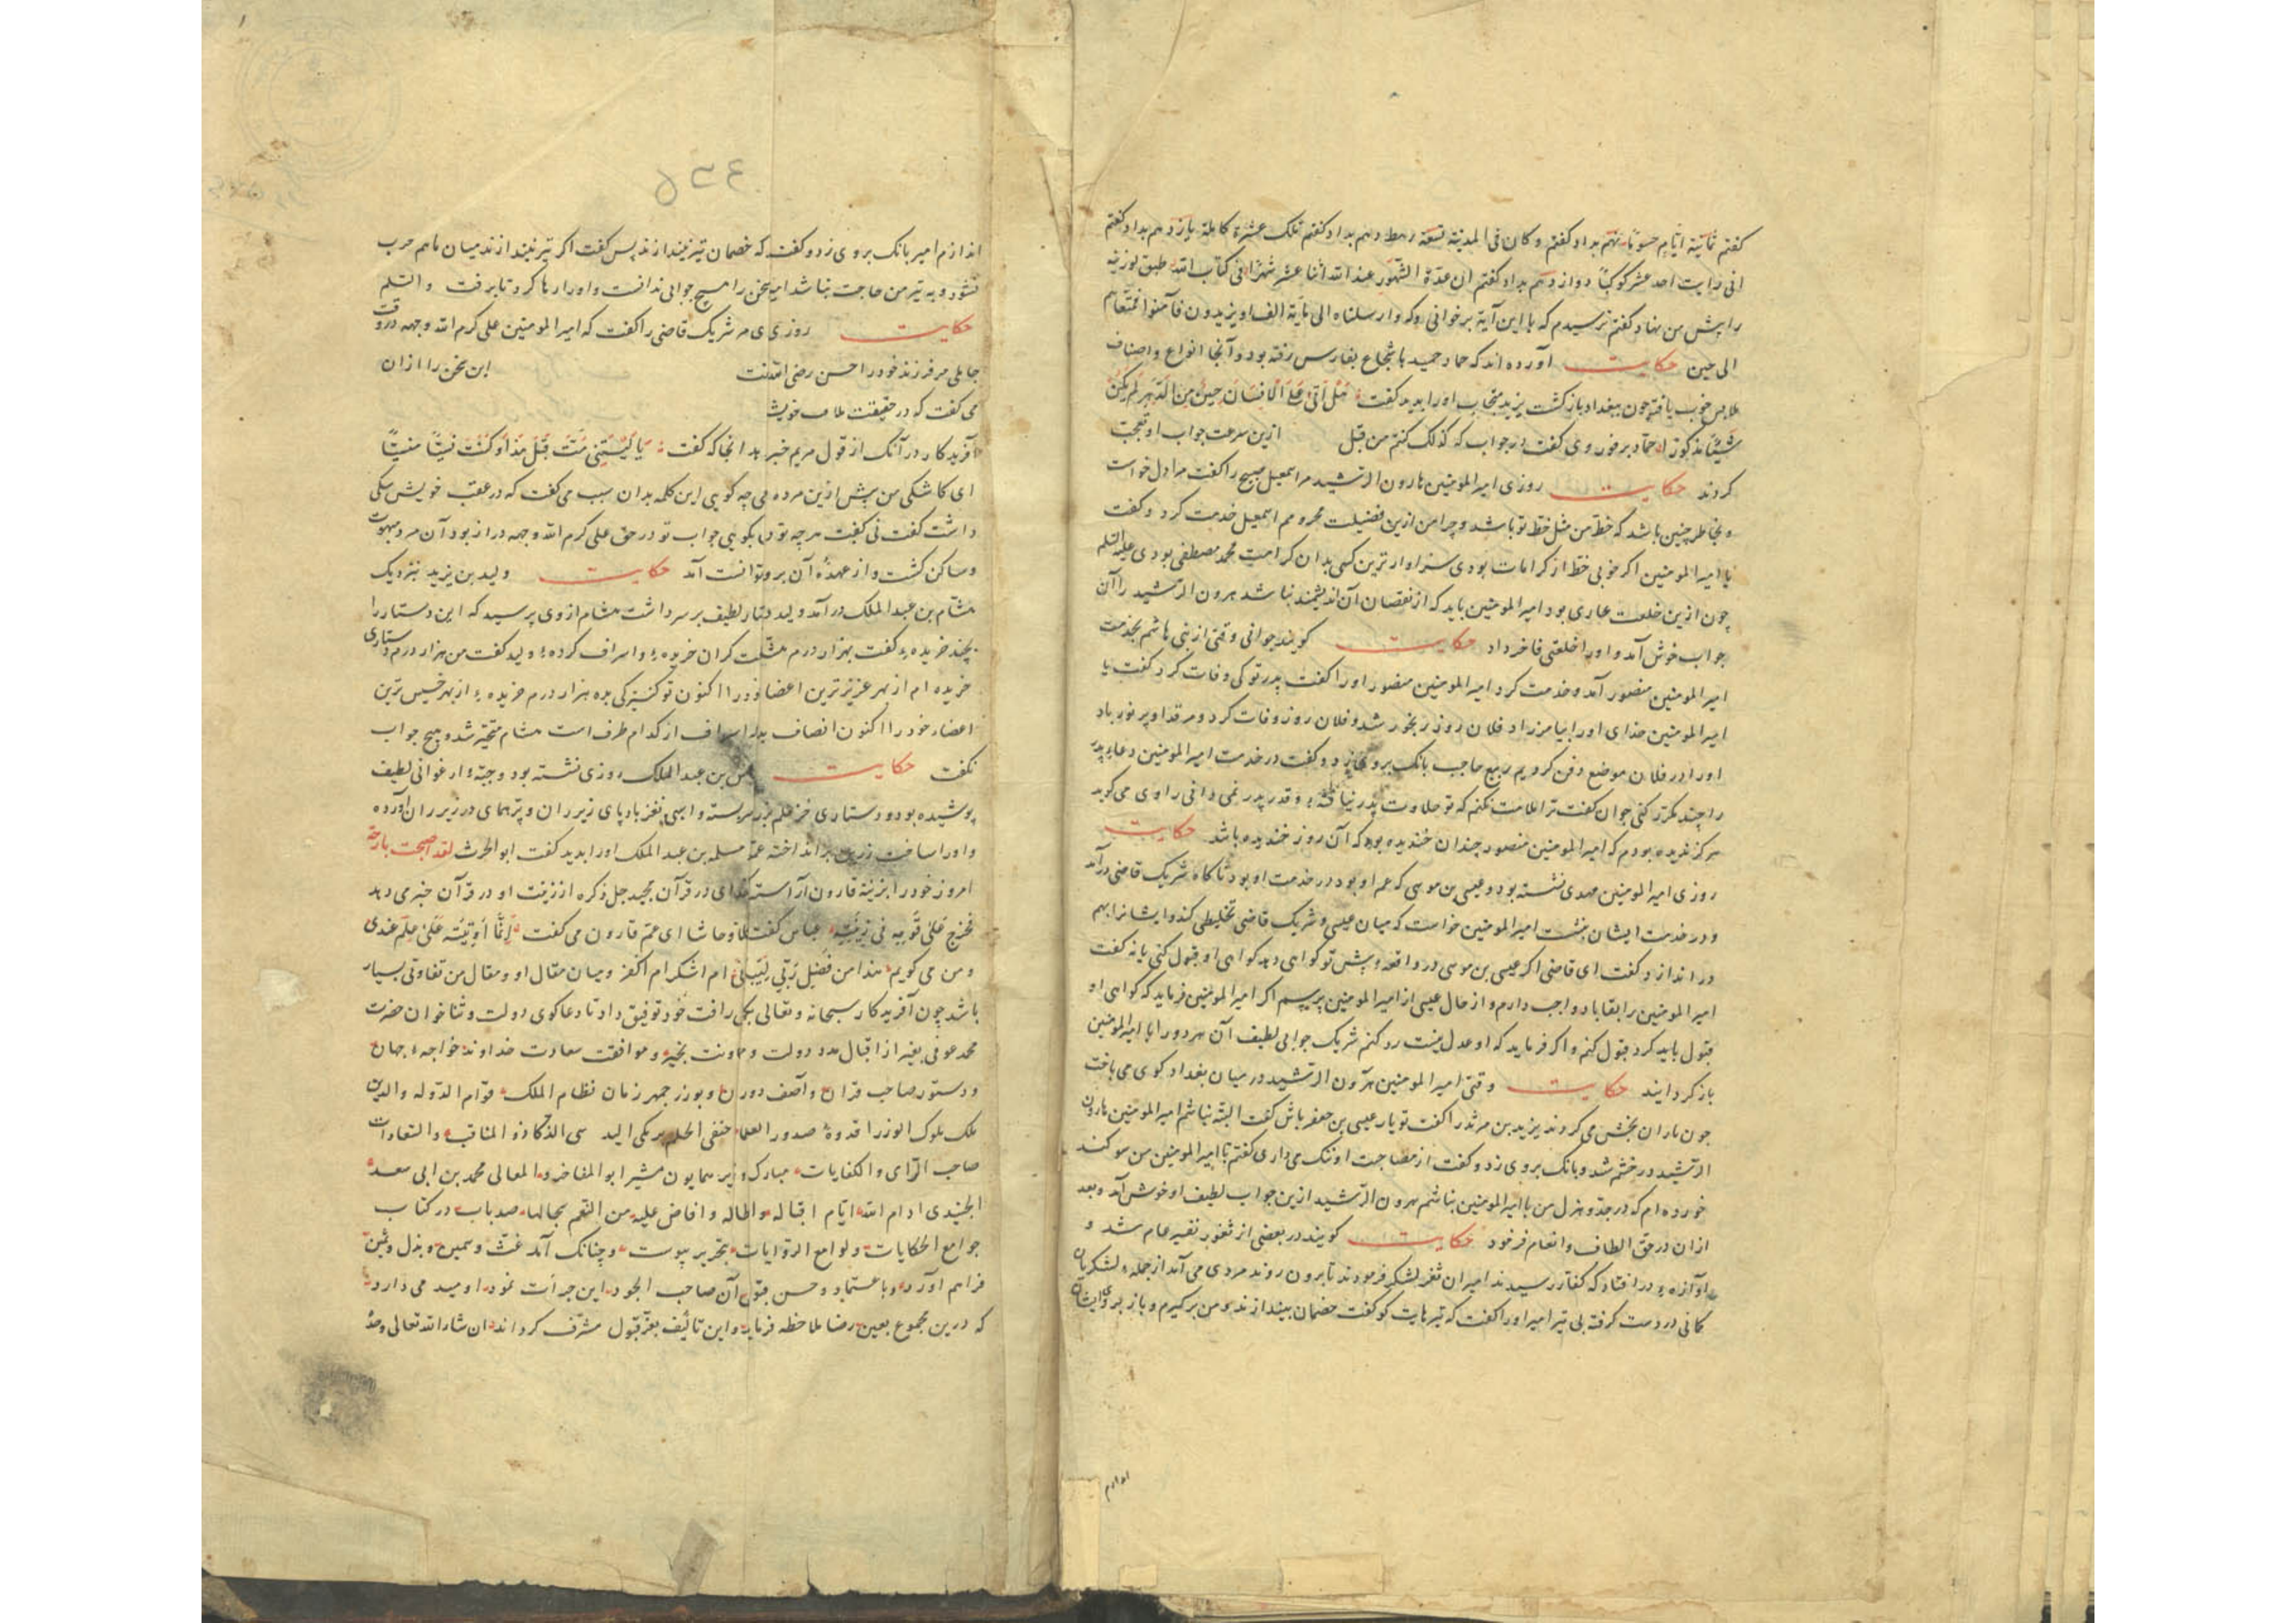 کفتم ثمانیة ایام حسوما نهم بداد کفتم و کان فی المدینة تسعة رهط دهم بداد کفتم تلک عشرة کاملة یازدهم بداد کفتم
انی رایت احد عشر کوکبا دوازدهم بداد کفتم ان عدة الشهور عند الله اثنا عشر شهرا فی کتاب الله طبق لوزینه
را پیش من نهاد کفتم ترسیدم که با این آیة برخوانی که وارسلناه الی مایة الف او یزیدون فآمنوا فمتعناهم
الی حین حکایت آورده اند که حماد حمید با شجاع بفارس رفته بود و آنجا انواع و اصناف
ملابس خوب یافته چون ببغداد باز کشت یزید منجاب اورا بدید کفت هل اتی علی الانسان حین من الدهر لم یکن
شیئا مذکورا حماد بر فور وی کفت در جواب که کذلک کنتم من قبل ازین سرعت جواب او تعجب
کردند حکایت روزی امیر المومنین هارون الرشید مر اسمعیل صبیح را کفت مرا دل خواست
و بخاطر چنین باشد که خط من مثل خط تو باشد و چرا من ازین فضیلت محرومم اسمعیل خدمت کرد و کفت
یا امیر المومنین اکر خوبی خط از کرامات بودی سزاوارترین کسی بدان کرامت محمد مصطفی بودی علیه السلم
چون ازین خلعت عاری بود امیر المومنین باید که از نقصان آن اندیشمند نباشد هرون الرشید را آن
جواب خوش آمد و اورا خلعتی فاخر داد حکایت کویند جوانی وقتی از بنی هاشم بخدمت
امیر المومنین منصور آمد و خدمت کرد امیر المومنین منصور اورا کفت پدر تو کی وفات کرد کفت یا
امیر المومنین خدای اورا بیامرزاد فلان روز رنجور شد و فلان روز وفات کرد و مرقد او پر نور باد
اورا در فلان موضع دفن کردیم ربیع حاجب بانک برو زد و کفت در خدمت امیر المومنین دعاء پدر
را چند مکرر کنی جوان کفت ترا ملامت نکنم که تو حلاوت پدر نیافتهٔ و قدر پدر نمی دانی راوی می کوید
هرکز ندیده بودم که امیر المومنین منصور چندان خندیده بود که آن روز خندیده باشد حکایت
روزی امیر المومنین مهدی نشسته بود و عیسی بن موسی که عم او بود در خدمت او بود ناکاه شریک قاضی درآمد
و در خدمت ایشان بنشست امیر المومنین خواست که میان عیسی و شریک قاضی تخلیطی کند و ایشانرا بهم
در اندازد کفت ای قاضی اکر عیسی بن موسی در واقعه پیش تو کواهی دهد کواهی او قبول کنی یا نه کفت
امیر المومنین را بقا باد واجب دارم و از حال عیسی از امیر المومنین بپرسم اکر امیر المومنین فرماید که کواهی او
قبول باید کرد قبول کنم و اکر فرماید که او عدل نیست رد کنم شریک جوابی لطیف آن هر دو را با امیر المومنین
باز کردانید حکایت وقتی امیر المومنین هرون الرشید در میان بغداد کوی می باخت
چون یاران بخش می کردند یزید بن مرثد را کفت تو یار عیسی بن جعفر باش کفت البته نباشم امیر المومنین هارون
الرشید در خشم شد و بانک بروی زد و کفت از مصاحبت او ننک می داری کفتم یا امیر المومنین من سوکند
خورده ام که در جد و هزل من با امیر المومنین بناشم هرون الرشید ازین جواب لطیف او خوش آمد و بعد
ازان در حق الطاف و انعام فرمود حکایت کویند در بعضی از ثغور نفیر عام شد و
آوازه در افتاد که کفار رسیدند امیران ثغر لشکر فرمودند تا برون روند مردی می آمد از جملهٔ لشکریان
کمانی در دست کرفته بی تیر امیر اورا کفت که تیرهایت کو کفت خصمان بیندازند و من برکیرم و باز بروی ایشان
اندازم
اندازم امیر بانک بروی زد و کفت که خصمان تیر نیندازند پس کفت اکر تیر نیندازند میان ما هم حرب
نشود و به تیر من حاجت نباشد امیر سخن را هیچ جوابی ندانست و اورا رها کرد تا برفت والسلم
حکایت روزی مر شریک قاضی را کفت که امیر المومنین علی کرم الله وجهه در وقت
جاهلی مر فرزند خود را حسن رضی الله این سخن را ازان
می کفت که در حقیقت ملاف خویش
آفریدکار در آنک از قول مریم خبر بد انجا که کفت یا لیتنی مت قبل هذا و کنت نسیا منسیا
ای کاشکی من پیش ازین مرده می چه کویی این کلمه بدان سبب می کفت که در عقب خویش سکی
داشت کفت نی کفت هرچه تو بکویی جواب تو در حق علی کرم الله وجهه دراز بود آن مرد مبهوت
و ساکن کشت و از عهدهٔ آن برو توانست آمد حکایت ولید بن یزید بنزدیک
هشام بن عبد الملک درآمد ولید دستار لطیف بر سر داشت هشام از وی پرسید که این دستار را
بچند خریدهٔ کفت بهزار درم هشام کفت کران خریدهٔ و اسراف کردهٔ ولید کفت من هزار درم دستاری
خریده ام از بهر عزیزترین اعضاء خود را اکنون تو کنیزکی بده هزار درم خریدهٔ از بهر خسیس ترین
اعضاء خود را اکنون انصاف بده اسراف از کدام طرف است هشام متحیر شد و هیچ جواب
نکفت حکایت بن عبد الملک روزی نشسته بود و جبهٔ ارغوانی لطیف
پوشیده بود و دستاری خز علم بر سر بسته و اسبی نغز باد پای زیر ران و پر همای در زیر ران آورده
و اورا ساخت زرین بر انداخته عمه مسلمه بن عبد الملک اورا بدید کفت ابو الحرث لقد اصبحت بارحة
امروز خود را بزینة قارون آراسته خدای در قرآن مجید جل ذکره از زینت او در قرآن خبر می دهد
فخرج علی قومه فی زینته عباس کفت حاشا ای عم قارون می کفت انما اوتیته علی علم عندی
و من می کویم هذا من فضل ربی لیبلونی ام اشکر ام اکفر و میان مقال او و مقال من تفاوتی بسیار
باشد چون آفریدکار سبحانه و تعالی بکمال رافت خود توفیق داد تا دعاکوی دولت و ثناخوان حضرت
محمد عوفی بغیر از اقبال مدد دولت و معاونت بخت و موافقت سعادت خداوند خواجهٔ جهان
و دستور صاحب قران و آصف دوران و بوزرجمهر زمان نظام الملک قوام الدوله والدین
ملک ملوک الوزرا قدوة صدور العلما حنفی الحلم برمکی الید سی الذکا ذو المناقب والسعادات
صاحب الرای و الکفایات مبارک وزیر همایون مشیر ابو المفاخر و المعالی محمد بن ابی سعد
الجنیدی ادام الله ایام اقباله و اطاله و افاض علیه من النعم سجالها صد باب در کتاب
جوامع الحکایات و لوامع الروایات بتحریر پیوست و چنانک آمد غث و سمین و بذل و ثمین
فراهم آورد و با عتماد و حسن قبول آن صاحب الجود این جرأت نمود و امید می دارد
که درین مجموع بعین رضا ملاحظه فرماید و این تالیف بعز قبول مشرف کرداند ان شاء الله تعالی وحده